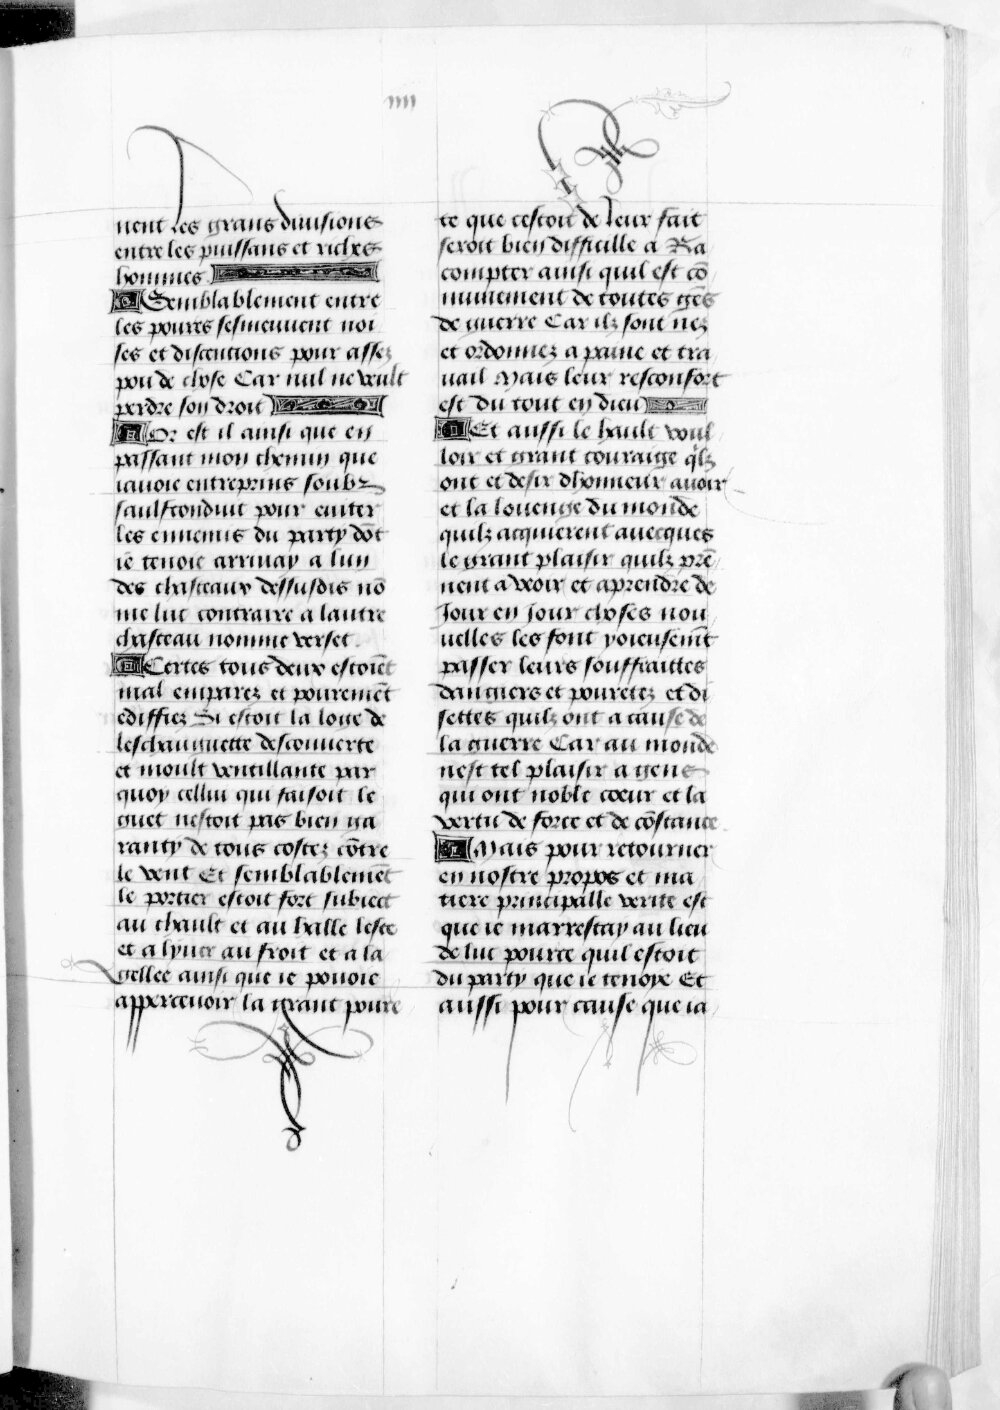 iiii
nent les grans diuisions
entre les puissans et riches
hommes
Semblablement entre
les poures sesmeuuent noi
ses et discentions pour assez
pou de chose Car nul ne veult
perdre son droit
Or est il ainsi que en
passant mon chemin que
iauoie entreprins soubz
saulfconduit pour euiter
les ennemis du party dōt
ie tenoie arriuay a lun
des chasteaux dessusdis nō
me luc contraire a lautre
chasteau nomme verset
Certes tous deux estoiēt
mal emparez et pouremēt
ediffiez Si estoit la loge de
leschauguette descouuerte
et moult ventillante par
quoy cellui qui faisoit le
guet nestoit pas bien ga
ranty de tous costez cōtre
le vent Et semblablemēt
le portier estoit fort subiect
au chault et au halle leste
et a lyuer au froit et a la
gellee ainsi que ie pouoie
apperceuoir la grant poure
te que cestoit de leur fait
seroit bien difficille a Ra
compter ainsi quil est cō
munement de toutes gēs
de guerre Car ilz sont nez
et ordonnez a paine et tra
uail Mais leur resconfort
est du tout en dieu
Et aussi le hault voul
loir et grant couraige qlz
ont et desir dhonneur auoir
et la louenge du monde
quilz acquierent auecques
le grant plaisir quilz prē
nent a veoir et aprendre de
Jour en Jour choses nou
uelles les font yoieusemt
passer leurs souffraittes
dangiers et pouretez et di
settes quilz ont a cause de
la guerre Car au monde
nest tel plaisir a gens
qui ont noble coeur et la
vertu de force et de cōstance
Mais pour retourner
en nostre propos et ma
tiere principalle verite est
que ie marrestay au lieu
de luc pource quil estoit
du party que ie tenoye Et
aussi pour cause que ia